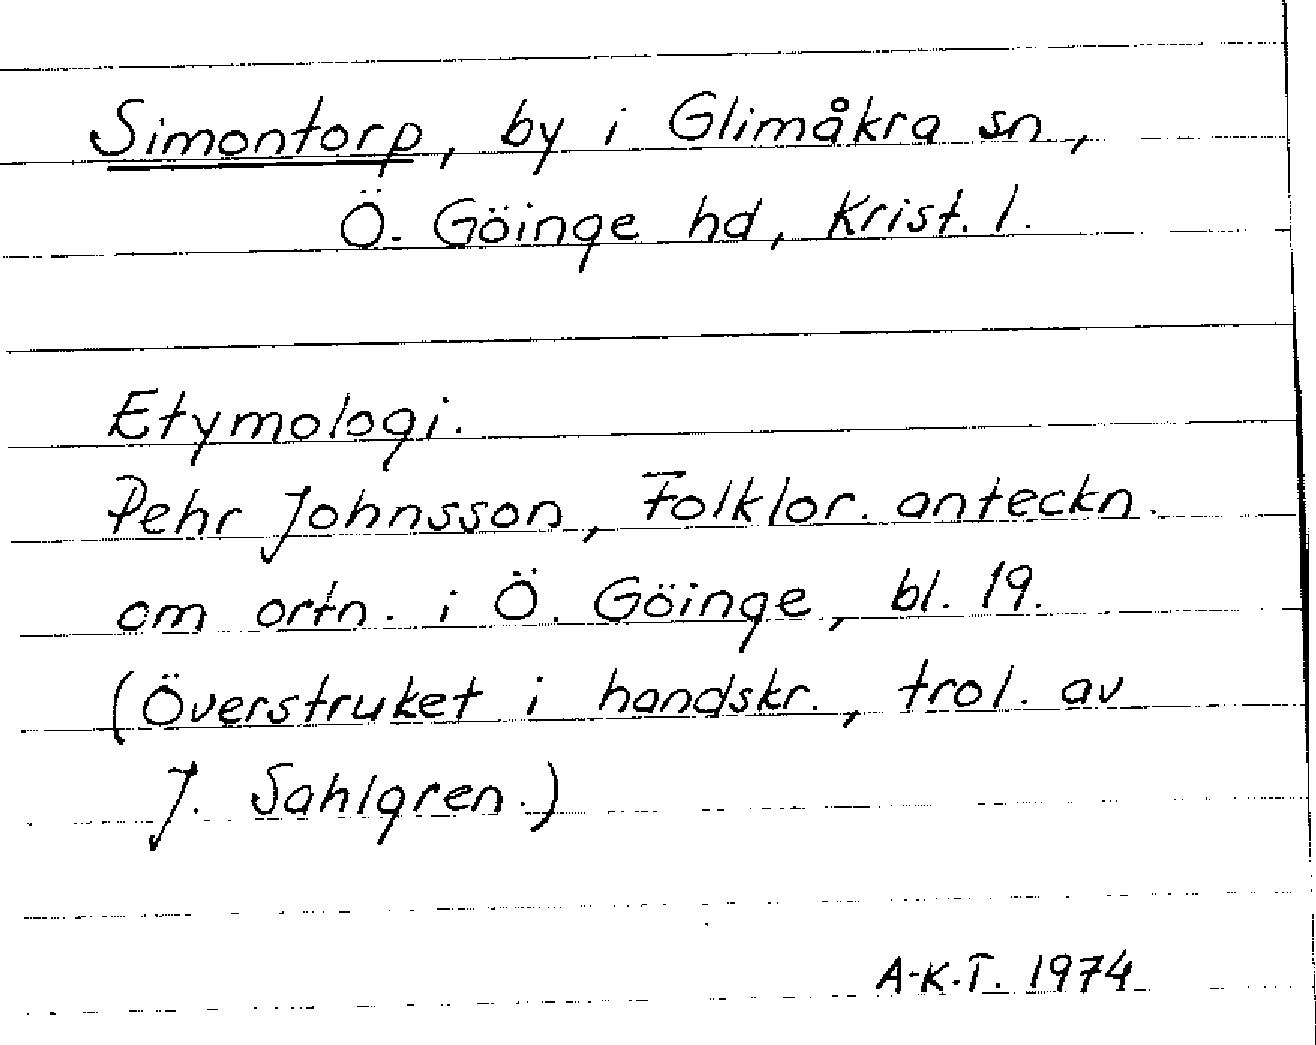 Simontorp, by i Glimåkra sn,
Ö. Göinge hd, Krist. l.
Etymologi.
Pehr Johnsson, Folklor. anteckn.
om ortn. i Ö. Göinge, bl. 19.
(Överstruket i handskr., trol. av
J. Sahlgren.)
A-K.T. 1974